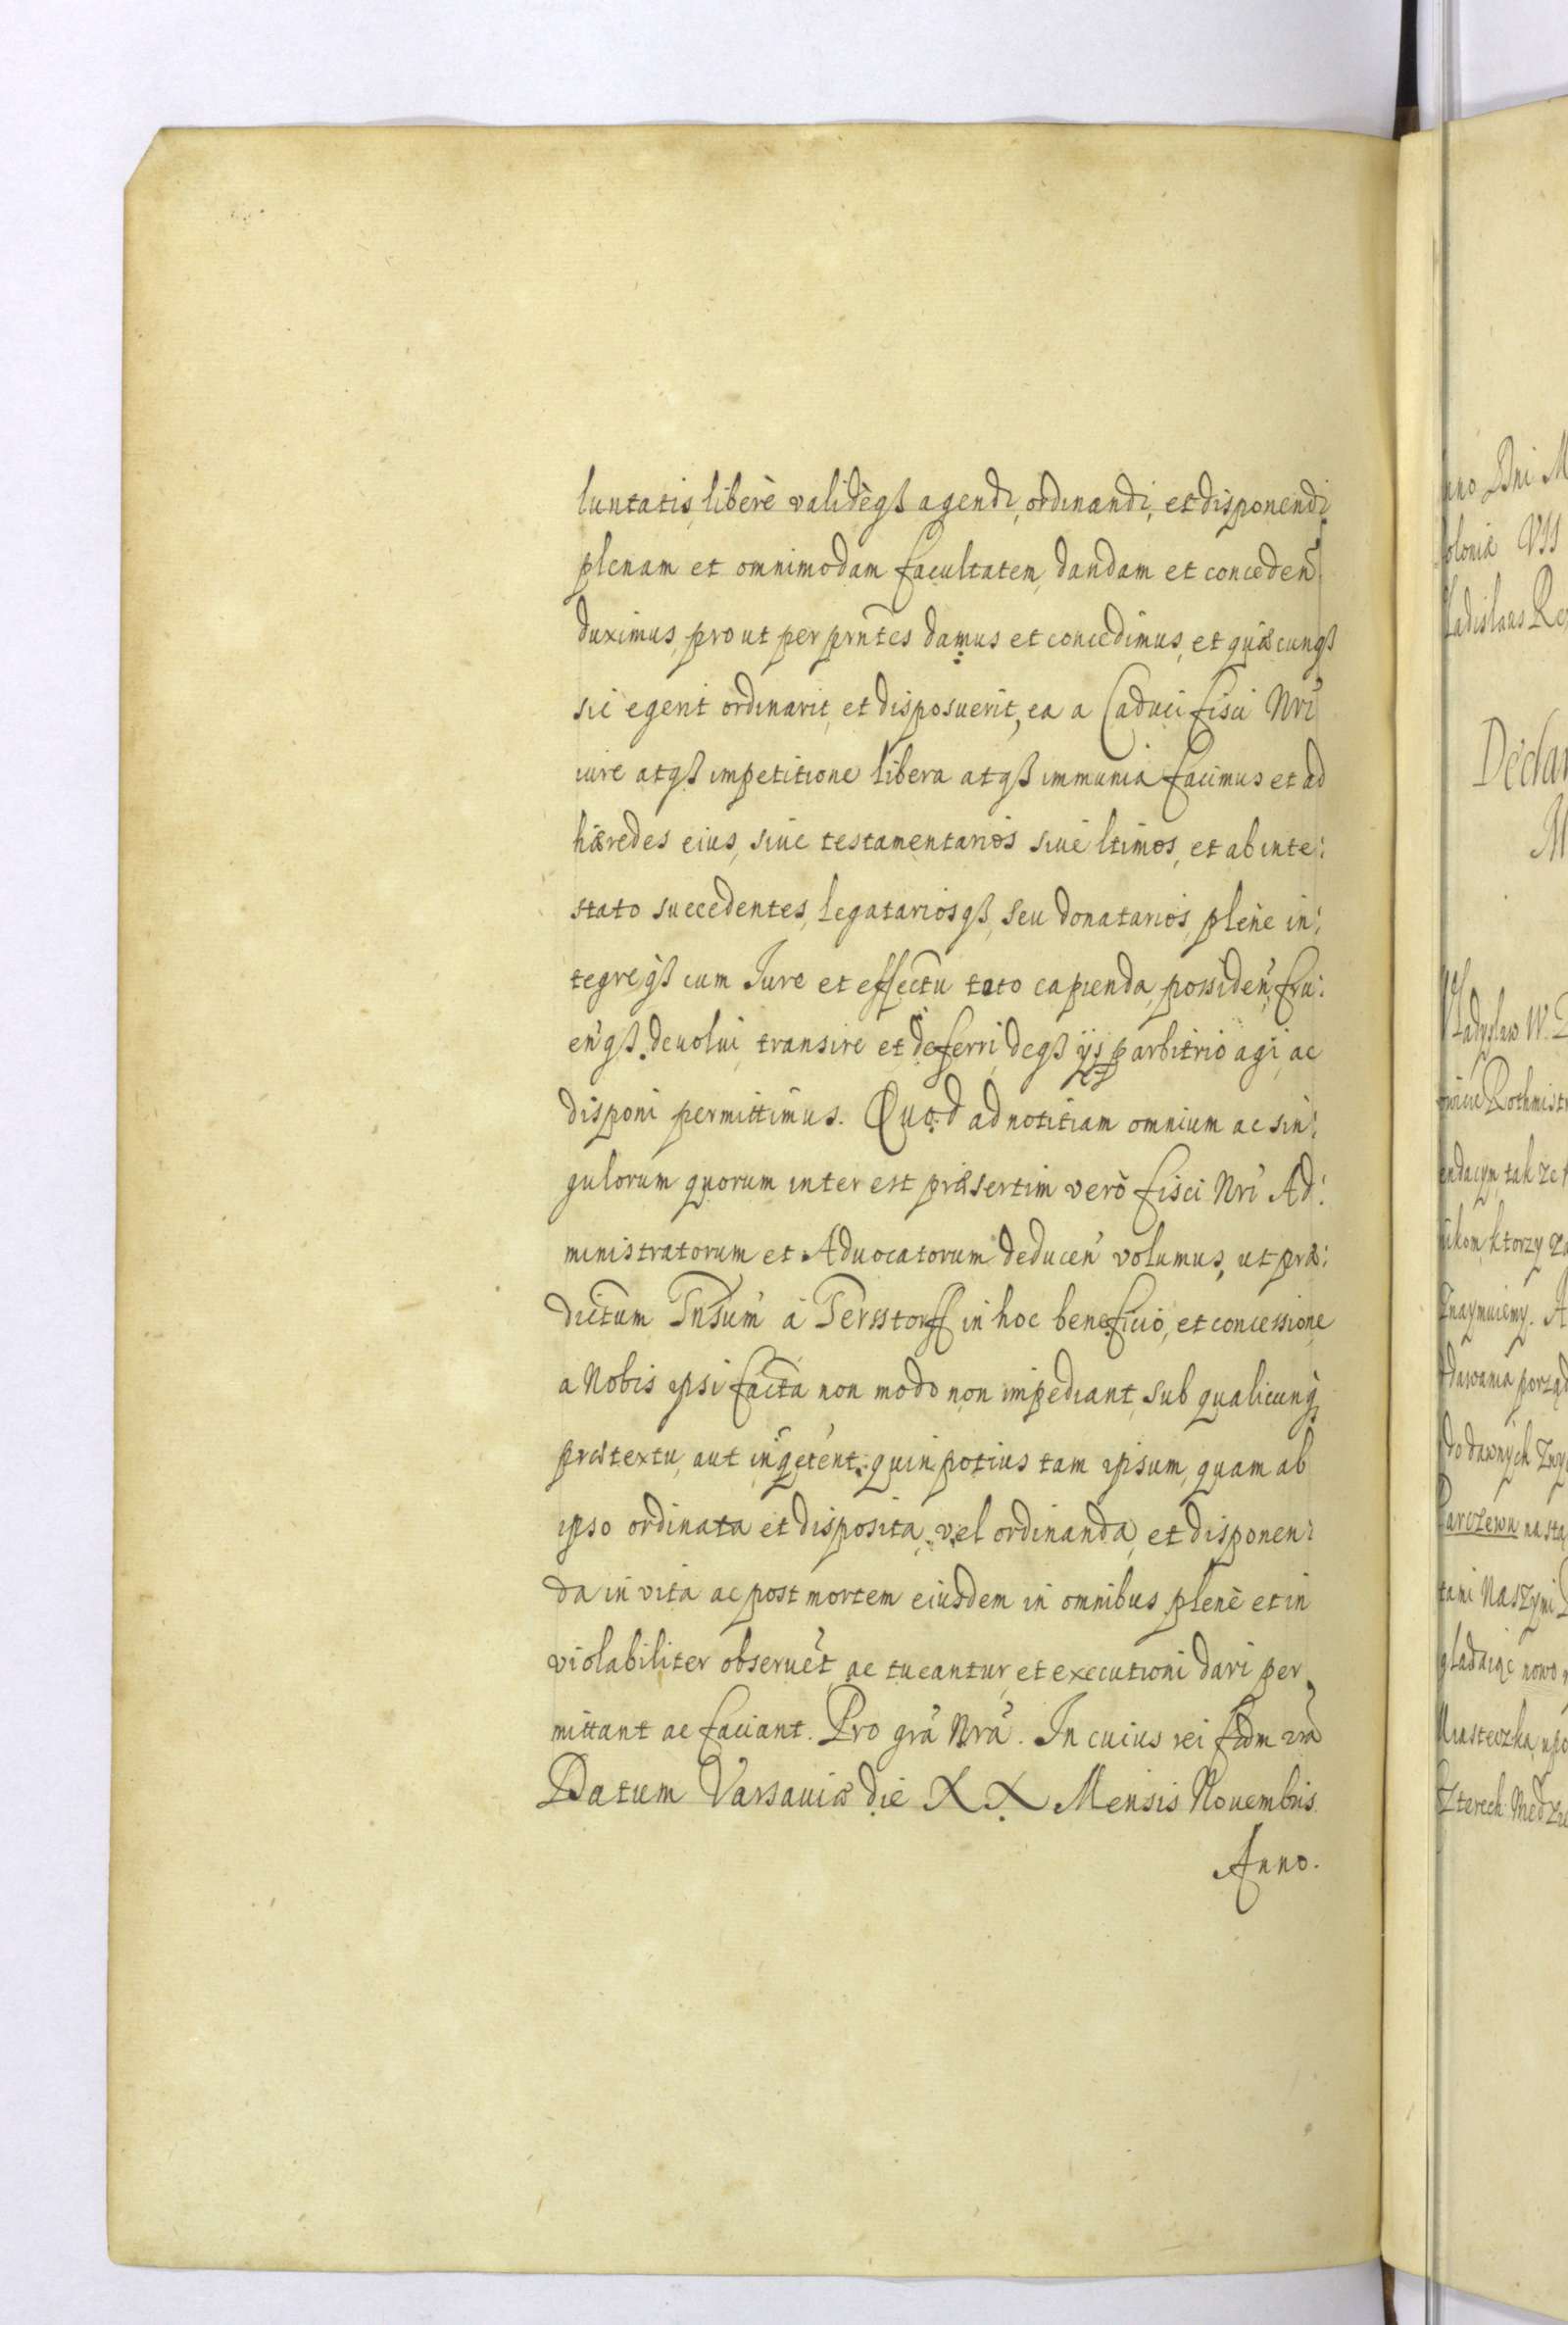 luntatis, liberè validèqß agendi, ordinandi, et disponendi
plenam et omnimodam facultatem, dandam et conceden̄
duximus, prout per prn̄tes damus et concedimus, et quæcunqß
sic egerit ordinarit, et disposuerit, ea a Caduci fisci Nri
iure atqß impetitione libera atqß immunia facimus et ad
hæredes eius, siue testamentarios siue ltimos, et ab inte:
stato succedentes, legatariosqß, seu donatarios, plene in:
tegreqß cum Iure et effectu toto capienda, possiden, fru:
enqß. deuolui transire et deferri, deqß ijs p arbitrio agi, ac
disponi permittimus. Quod ad notitiam omnium ac sin:
gulorum quorum interest præsertim verò fisci Nri Ad:
ministratorum et Aduocatorum deducen volumus, ut præ:
dictum Insum à Tersstorff in hoc beneficio, et concessione
a Nobis ipsi facta non modo non impediant, sub qualicunq
prætextu, aut in quin potius tam ipsum, quam ab
ipso ordinata et disposita, vel ordinanda, et disponen:
da in vita ac post mortem eiusdem in omnibus plenè et in
violabiliter obseruet, ac tueantur, et executioni dari per
mittant ac faciant. Pro gra Nra. In cuius rei fidm
Datum Varsauiæ die XX Mensis Nouembris
Anno.
nno Dni M
oloniæ VII
ladislaus Re
Declar
M
ladyslaw W.
Rothmistr
endacym, tak ze
ktorzy za
Znaymuiemy. A
dawania porząd
do dawnych Zwy
Parczewu na sta
tami Naszymi
nowo
Miasteczka
czterech